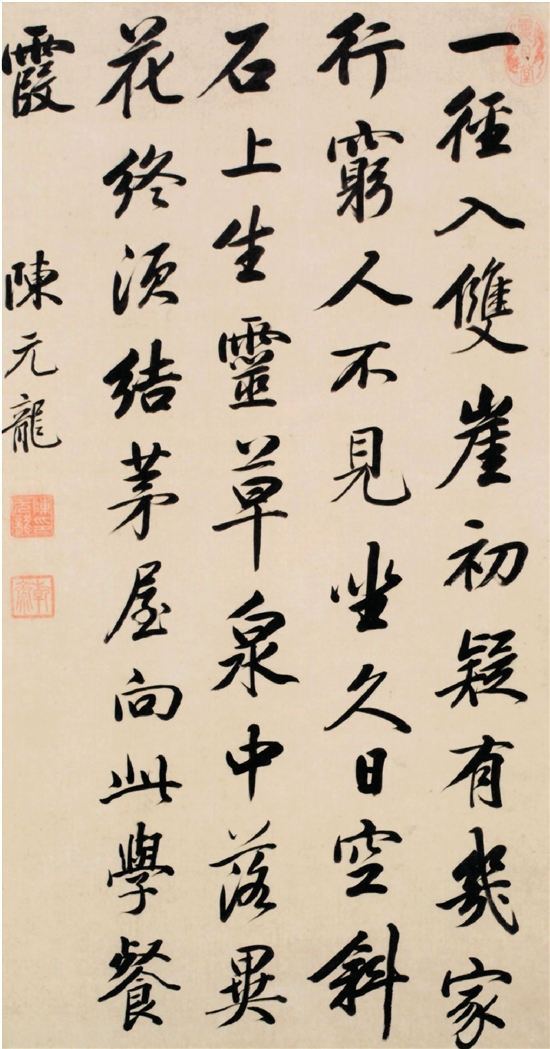 一徑入雙崖初疑有幾家
行窮人不見坐久日空斜
石上生靈草泉中落異
花終須結茅屋向此學餐
霞 陳元龍